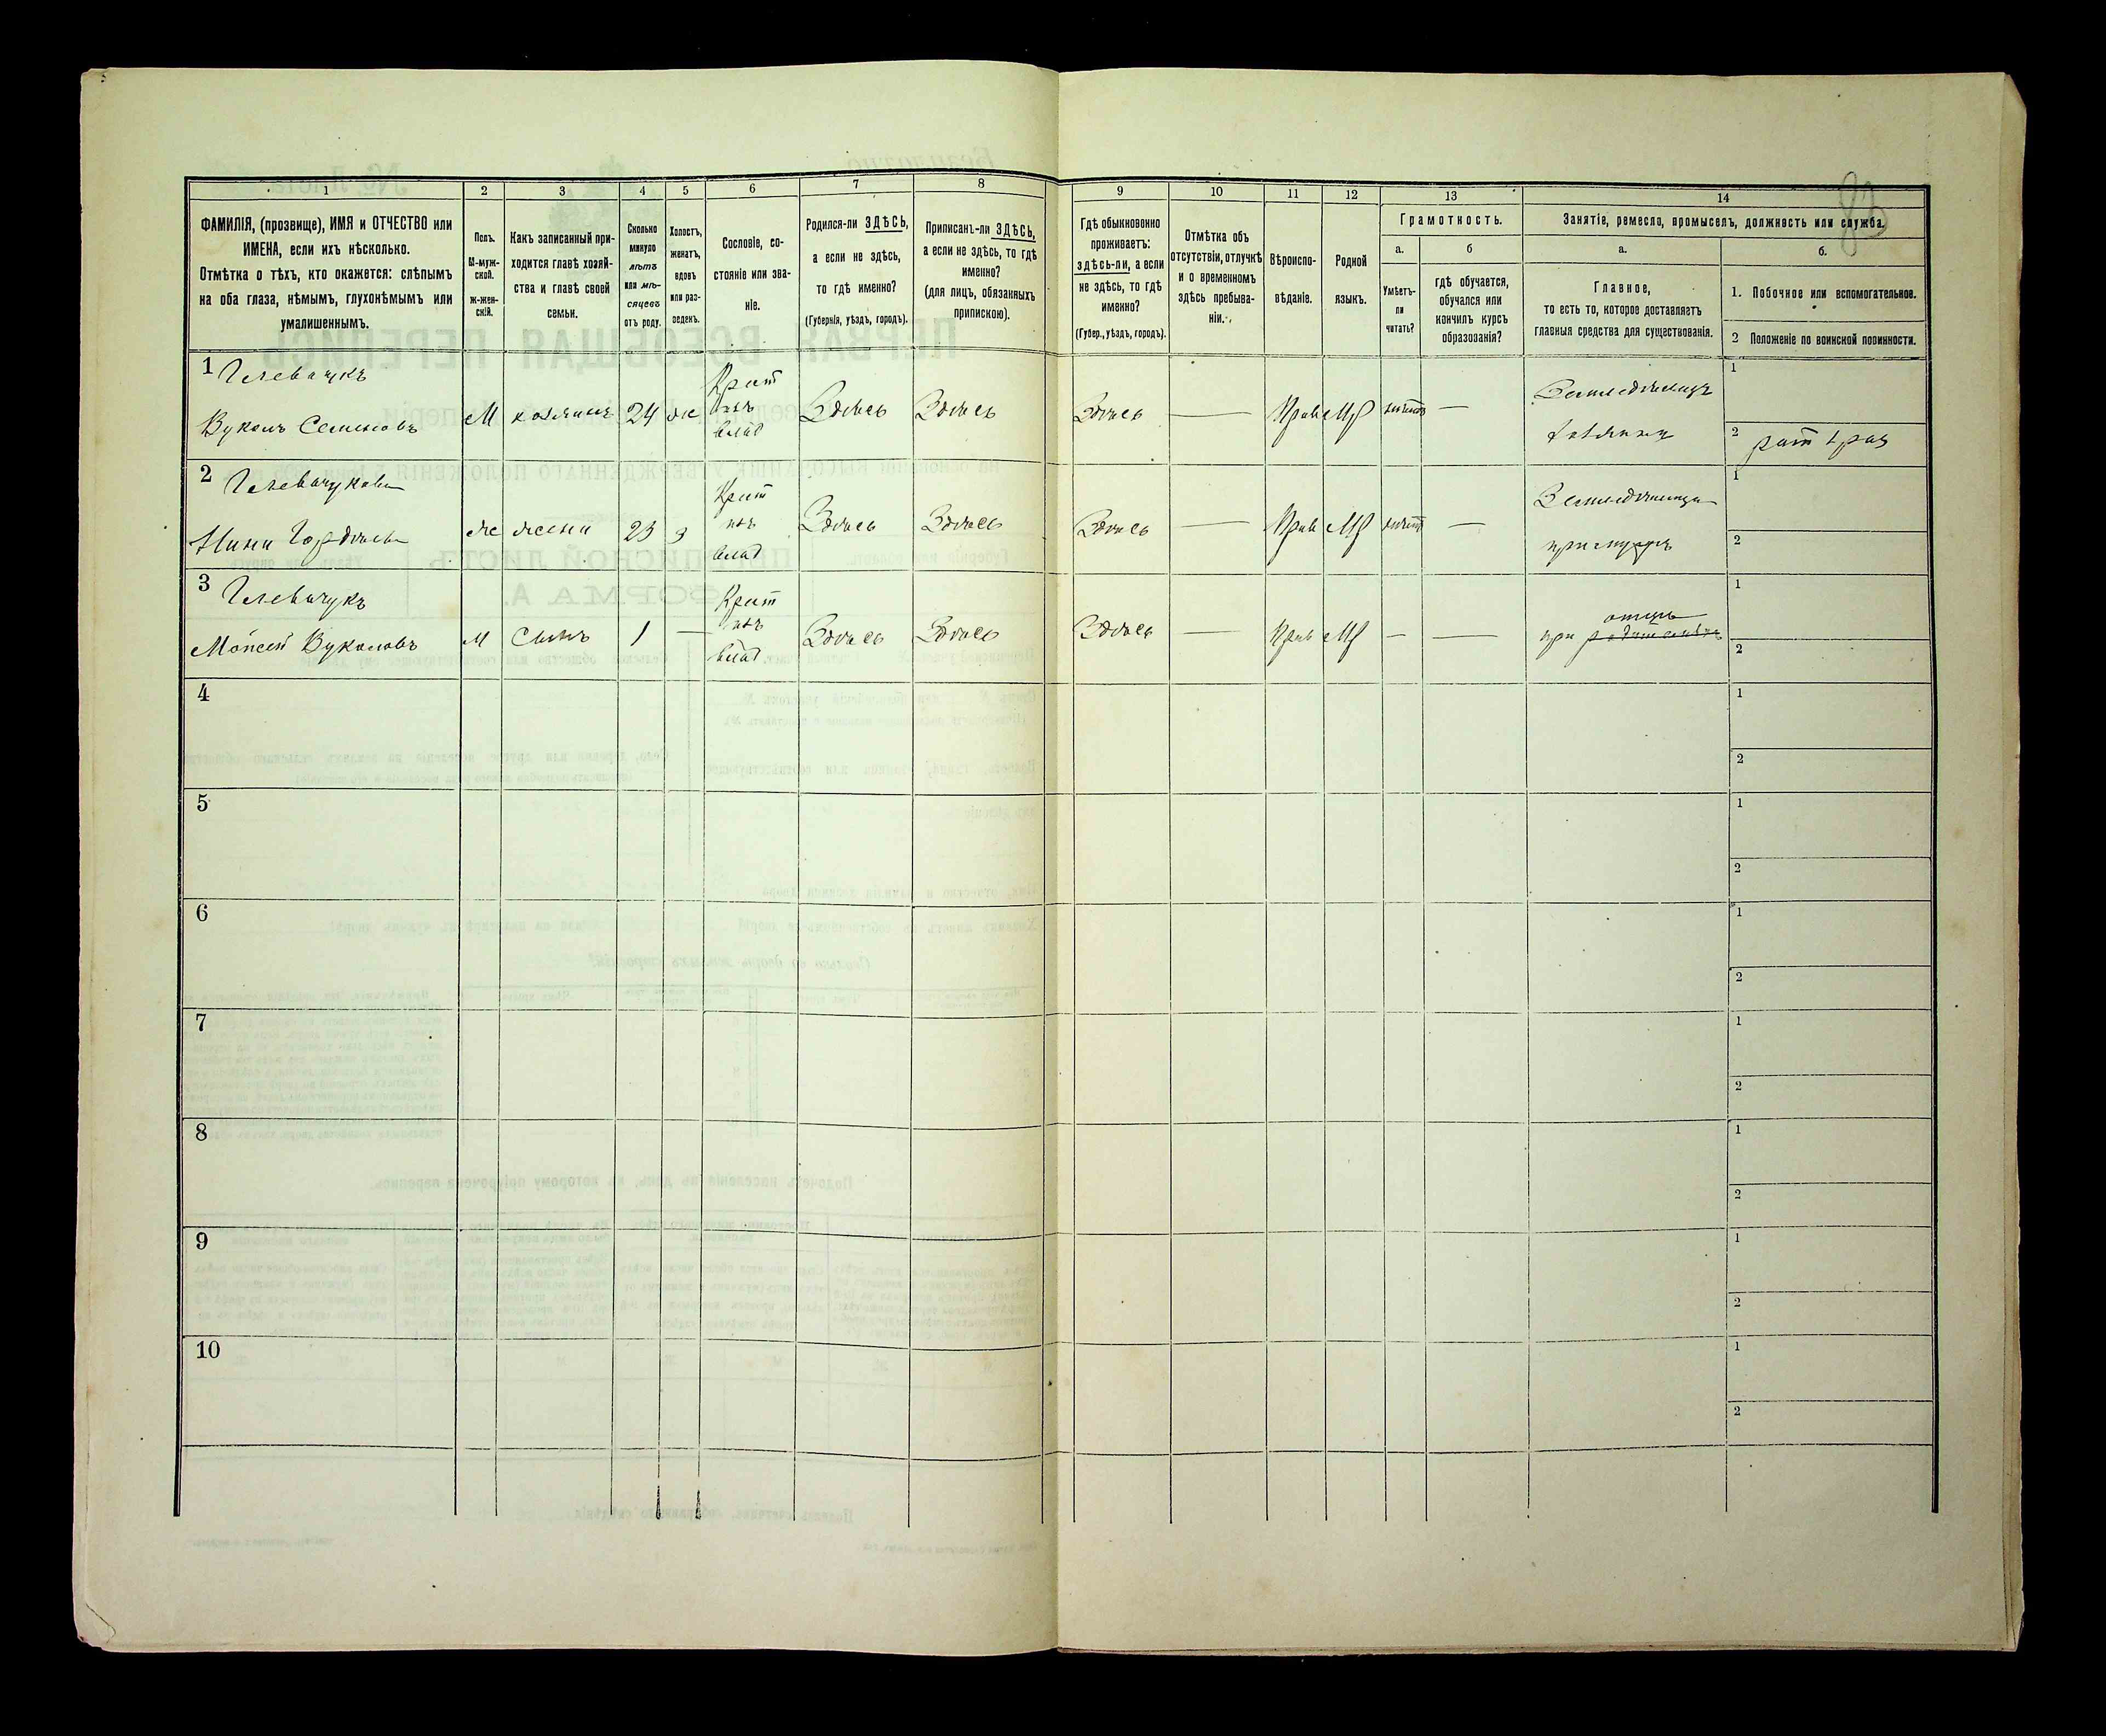 83
1 2 3 4 5 6 7 8 9 10 11 12 13 14
ФАМИЛІЯ, (прозвище), ИМЯ и ОТЧЕСТВО или
ИМЕНА, если ихъ нѣсколько.
Отмѣтка о тѣхъ, кто окажется: слѣпымъ
на оба глаза, нѣмымъ, глухонѣмымъ или
умалишеннымъ.
Полъ.
М-муж-
ской.
ж-жен-
скій.
Какъ записанный при-
ходится главѣ хозяй-
ства и главѣ своей
семьи.
Сколько
минуло
лѣтъ
или мѣ-
сяцевъ
отъ роду.
Холостъ,
женатъ,
вдовъ
или раз-
веденъ.
Сословіе, со-
стояніе или зва-
ніе.
Родился-ли ЗДѢСЬ,
а если не здѣсь,
то гдѣ именно?
(Губернія, уѣздъ, городъ).
Приписанъ-ли ЗДѢСЬ,
а если не здѣсь, то гдѣ
именно?
(для лицъ, обязанныхъ
припискою).
Гдѣ обыкновенно
проживаетъ:
здѣсь-ли, а если
не здѣсь, то гдѣ
именно?
(Губер., уѣздъ, городъ).
Отмѣтка объ
отсутствіи, отлучкѣ
и о временномъ
здѣсь пребыва-
ніи.
Вѣроиспо-
вѣданіе.
Родной
языкъ.
Грамотность.
а.
Умѣетъ-
ли
читать?
б
гдѣ обучается,
обучался или
кончилъ курсъ
образованія?
Занятіе, ремесло, промыселъ, должность или служба.
а.
Главное,
то есть то, которое доставляетъ
главныя средства для существованія.
б.
1. Побочное или вспомогательное.
2 Положеніе по воинской повинности.
1
Вуколъ Семеновъ
М хозяинъ 24 ж Крест изъ влад Здѣсь Здѣсь Здѣсь — Прав Мр нѣтъ —
Земледѣлецъ
хозяинъ
1
2 рат 1 раз
2
Нина Гордѣева
ж жена 23 з Крест изъ влад Здѣсь Здѣсь Здѣсь — Прав Мр нѣтъ —
Земледѣлица
при мужѣ
1
2
3
Моисей Вуколовъ
М сынъ 1 — Крест изъ влад Здѣсь Здѣсь Здѣсь — Прав Мр — —
отцѣ
при родителяхъ
1
2
4
1
2
5
1
2
6
1
2
7
1
2
8
1
2
9
1
2
10
1
2